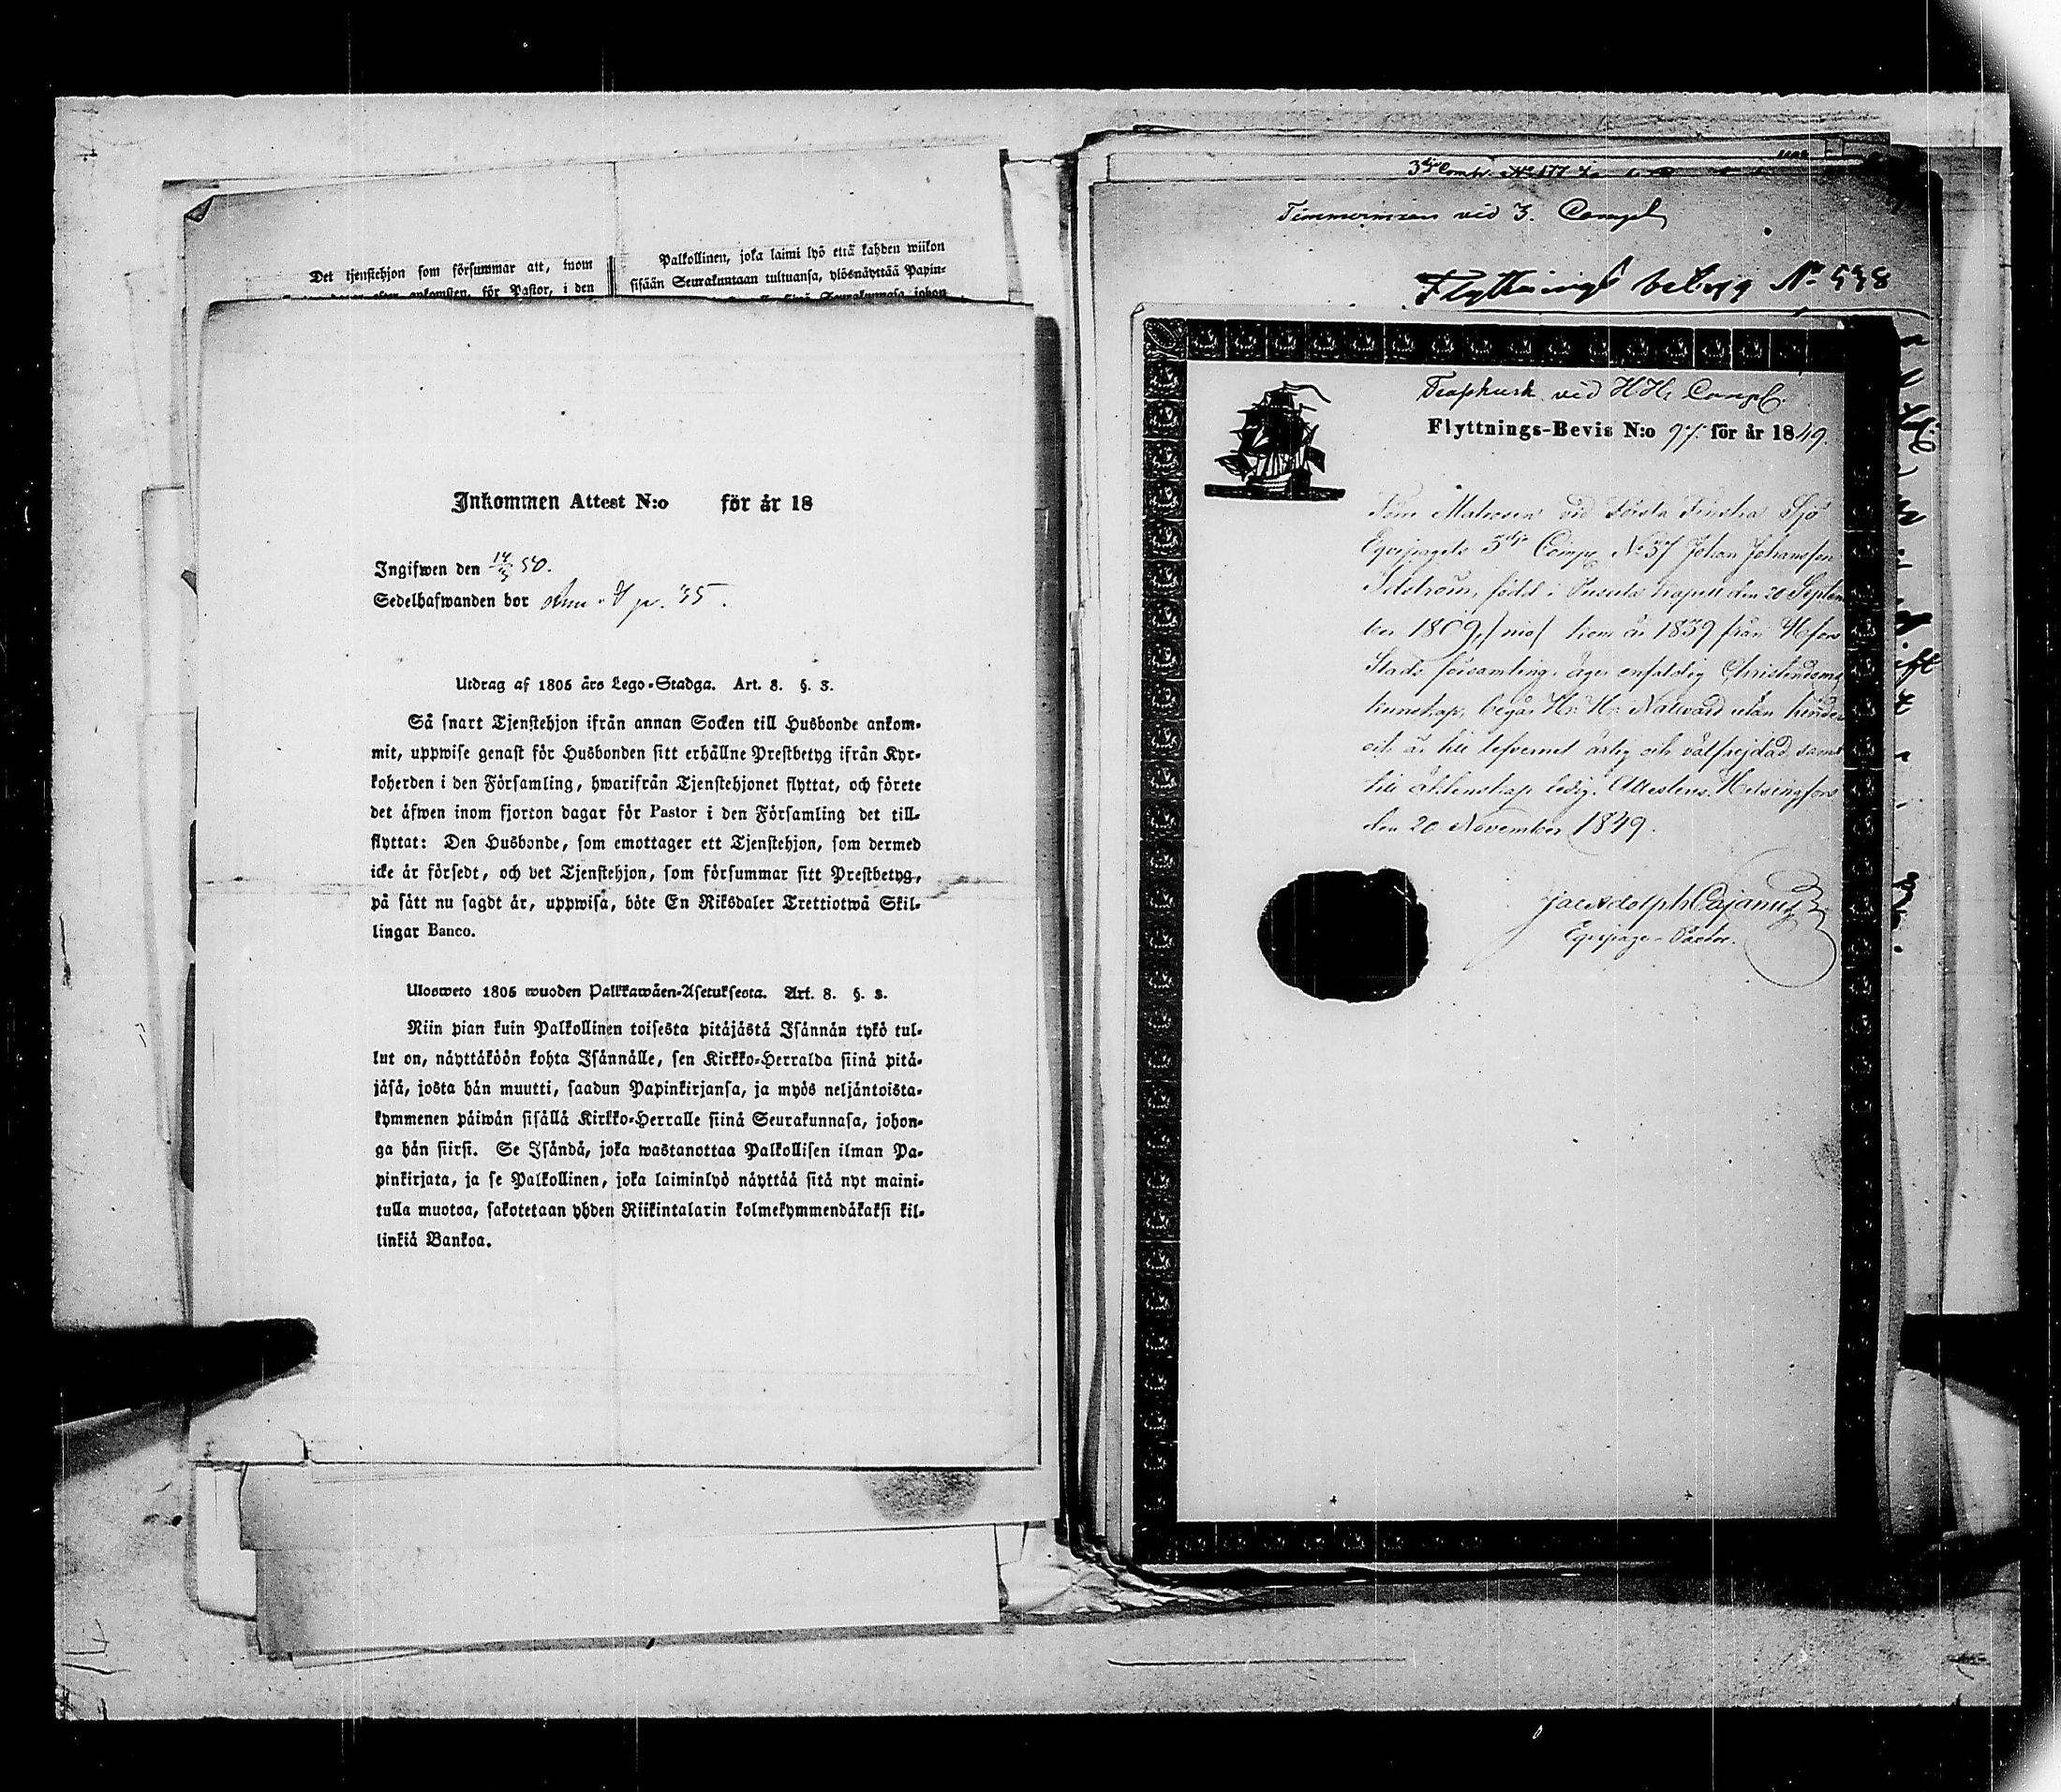 Det tjenstehjon som försummar att, inom
för Pastor, i den
Palkollinen, joka laimi lyö että kahden wiikon
sisään Seurakuntaan tultuansa, ylösnäyttää Papin-
Inkommen Attest N:o för år 18
Ingifwen den 14/3 50.
Sedelhafwanden bor
Utdrag af 1805 års Lego-Stadga. Art. 8. §. 3.
Så snart Tjenstehjon ifrån annan Socken till Husbonde ankom-
mit, uppwise genast för Husbonden sitt erhållne Prestbetyg ifrån Kyr-
koherden i den Församling, hwarifrån Tjenstehjonet flyttat, och förete
det äfwen inom fjorton dagar för Pastor i den Församling det till-
flyttat: Den Husbonde, som emottager ett Tjenstehjon, som dermed
icke är försedt, och det Tjenstehjon, som försummar sitt Prestbetyg,
på sätt nu sagdt är, uppwisa, böte En Riksdaler Trettiotwå Skil-
lingar Banco.
Ulosweto 1805 wuoden Palkkawäen-Asetuksesta. Art. 8. §. 3.
Niin pian kuin Palkollinen toisesta pitäjästä Isännän tykö tul-
lut on, näyttäköön kohta Isännälle, sen Kirkko-Herralda siinä pitä-
jäsä, josta hän muutti, saadun Papinkirjansa, ja myös neljäntoista-
kymmenen päiwän sisällä Kirkko-Herralle siinä Seurakunnasa, johon-
ga hän siirsi. Se Isändä, joka wastanottaa Palkollisen ilman Pa-
pinkirjata, ja se Palkollinen, joka laiminlyö näyttää sitä nyt maini-
tulla muotoa, sakotetaan yhden Riikintalarin kolmekymmendäkaksi kil-
linkiä Bankoa.
3dje Comp. No 177
Timmerman vid 3. Compl
Flyttnings betyg No 538
vid H.H. Compl.
Flyttnings-Bevis N:o 97. för år 1849.
Matrosen vid Första Finska Sjö
Equipagets 3dje Comp. No 37 Johan Johansson
född i Pusula Kapell den 20 Septem
ber 1809, /nio/ kom år 1839 från Hfors
Stads församling, äger enfaldig Christendoms
kunskap, begår H. H. Nattvard utan hinder
och är till lefvernet ärlig och välfrejdad samt
till äktenskap ledig. Attesteras. Helsingfors
den 20 November 1849.
Jac Adolph Cajanus
Equipage-Pastor.